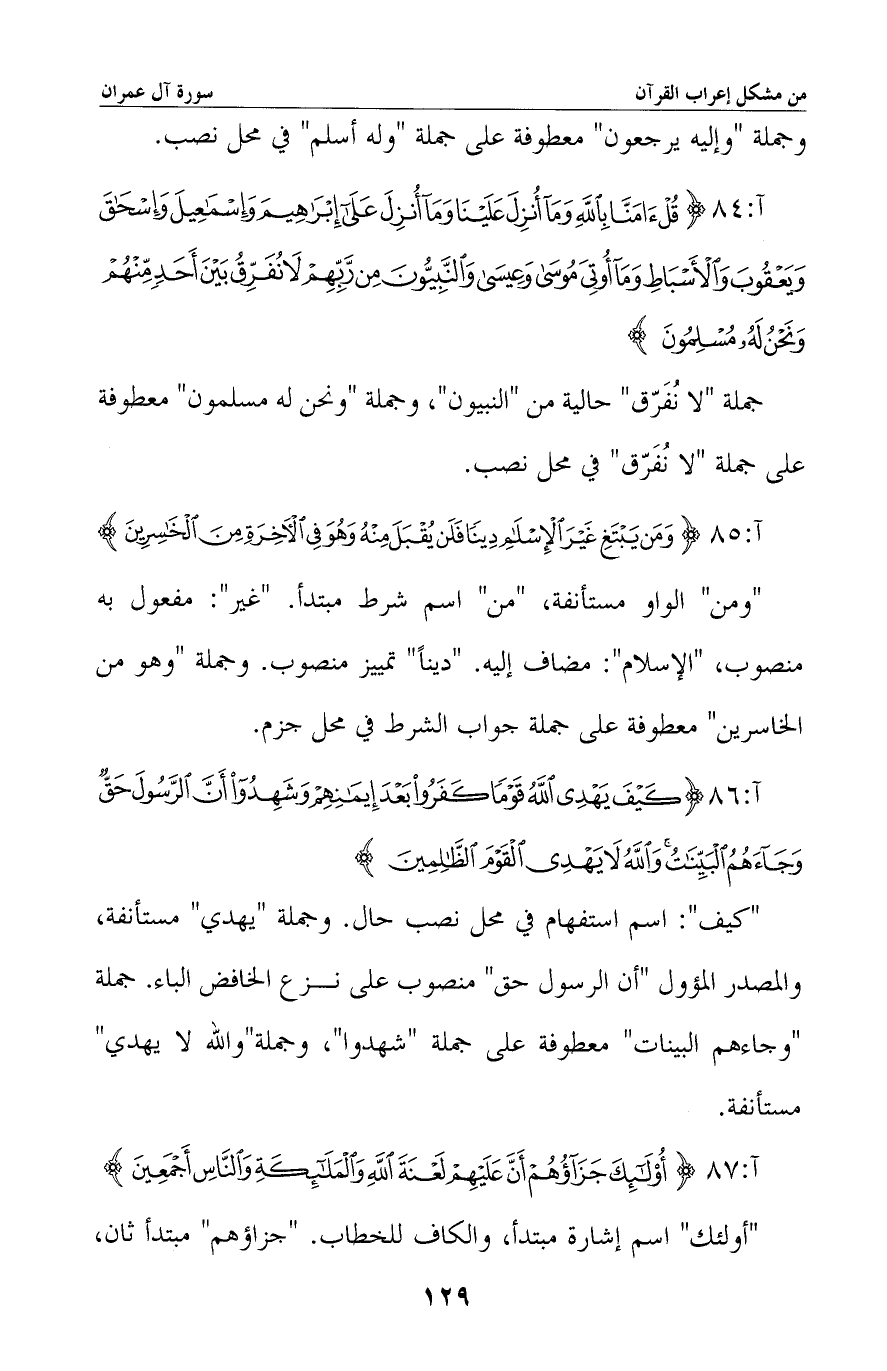 من مشكل إعراب القرآن سورة آل عمران
وجملة "وإليه يرجعون" معطوفة على جملة "وله أسلم" في محل نصب.
آ:٨٤ ﴿ قُلْ ءَامَنَّا بِٱللَّهِ وَمَآ أُنزِلَ عَلَيْنَا وَمَآ أُنزِلَ عَلَىٰٓ إِبْرَٰهِيمَ وَإِسْمَٰعِيلَ وَإِسْحَٰقَ
وَيَعْقُوبَ وَٱلْأَسْبَاطِ وَمَآ أُوتِىَ مُوسَىٰ وَعِيسَىٰ وَٱلنَّبِيُّونَ مِن رَّبِّهِمْ لَا نُفَرِّقُ بَيْنَ أَحَدٍ مِّنْهُمْ
وَنَحْنُ لَهُۥ مُسْلِمُونَ ﴾
جملة "لا نُفَرّق" حالية من "النبيون"، وجملة "ونحن له مسلمون" معطوفة
على جملة "لا نُفَرّق" في محل نصب.
آ:٨٥ ﴿ وَمَن يَبْتَغِ غَيْرَ ٱلْإِسْلَٰمِ دِينًا فَلَن يُقْبَلَ مِنْهُ وَهُوَ فِى ٱلْأَخِرَةِ مِنَ ٱلْخَٰسِرِينَ ﴾
"ومن" الواو مستأنفة، "من" اسم شرط مبتدأ. "غير": مفعول به
منصوب، "الإسلام": مضاف إليه. "ديناً" تمييز منصوب. وجملة "وهو من
الخاسرين" معطوفة على جملة جواب الشرط في محل جزم.
آ:٨٦ ﴿ كَيْفَ يَهْدِى ٱللَّهُ قَوْمًا كَفَرُوا۟ بَعْدَ إِيمَٰنِهِمْ وَشَهِدُوٓا۟ أَنَّ ٱلرَّسُولَ حَقٌّ
وَجَآءَهُمُ ٱلْبَيِّنَٰتُ ۚ وَٱللَّهُ لَا يَهْدِى ٱلْقَوْمَ ٱلظَّٰلِمِينَ ﴾
"كيف": اسم استفهام في محل نصب حال. وجملة "يهدي" مستأنفة،
والمصدر المؤول "أن الرسول حق" منصوب على نـــزع الخافض الباء. جملة
"وجاءهم البينات" معطوفة على جملة "شهدوا"، وجملة"والله لا يهدي"
مستأنفة.
آ:٨٧ ﴿ أُو۟لَٰٓئِكَ جَزَآؤُهُمْ أَنَّ عَلَيْهِمْ لَعْنَةَ ٱللَّهِ وَٱلْمَلَٰٓئِكَةِ وَٱلنَّاسِ أَجْمَعِينَ ﴾
"أولئك" اسم إشارة مبتدأ، والكاف للخطاب. "جزاؤهم" مبتدأ ثان،
١٢٩